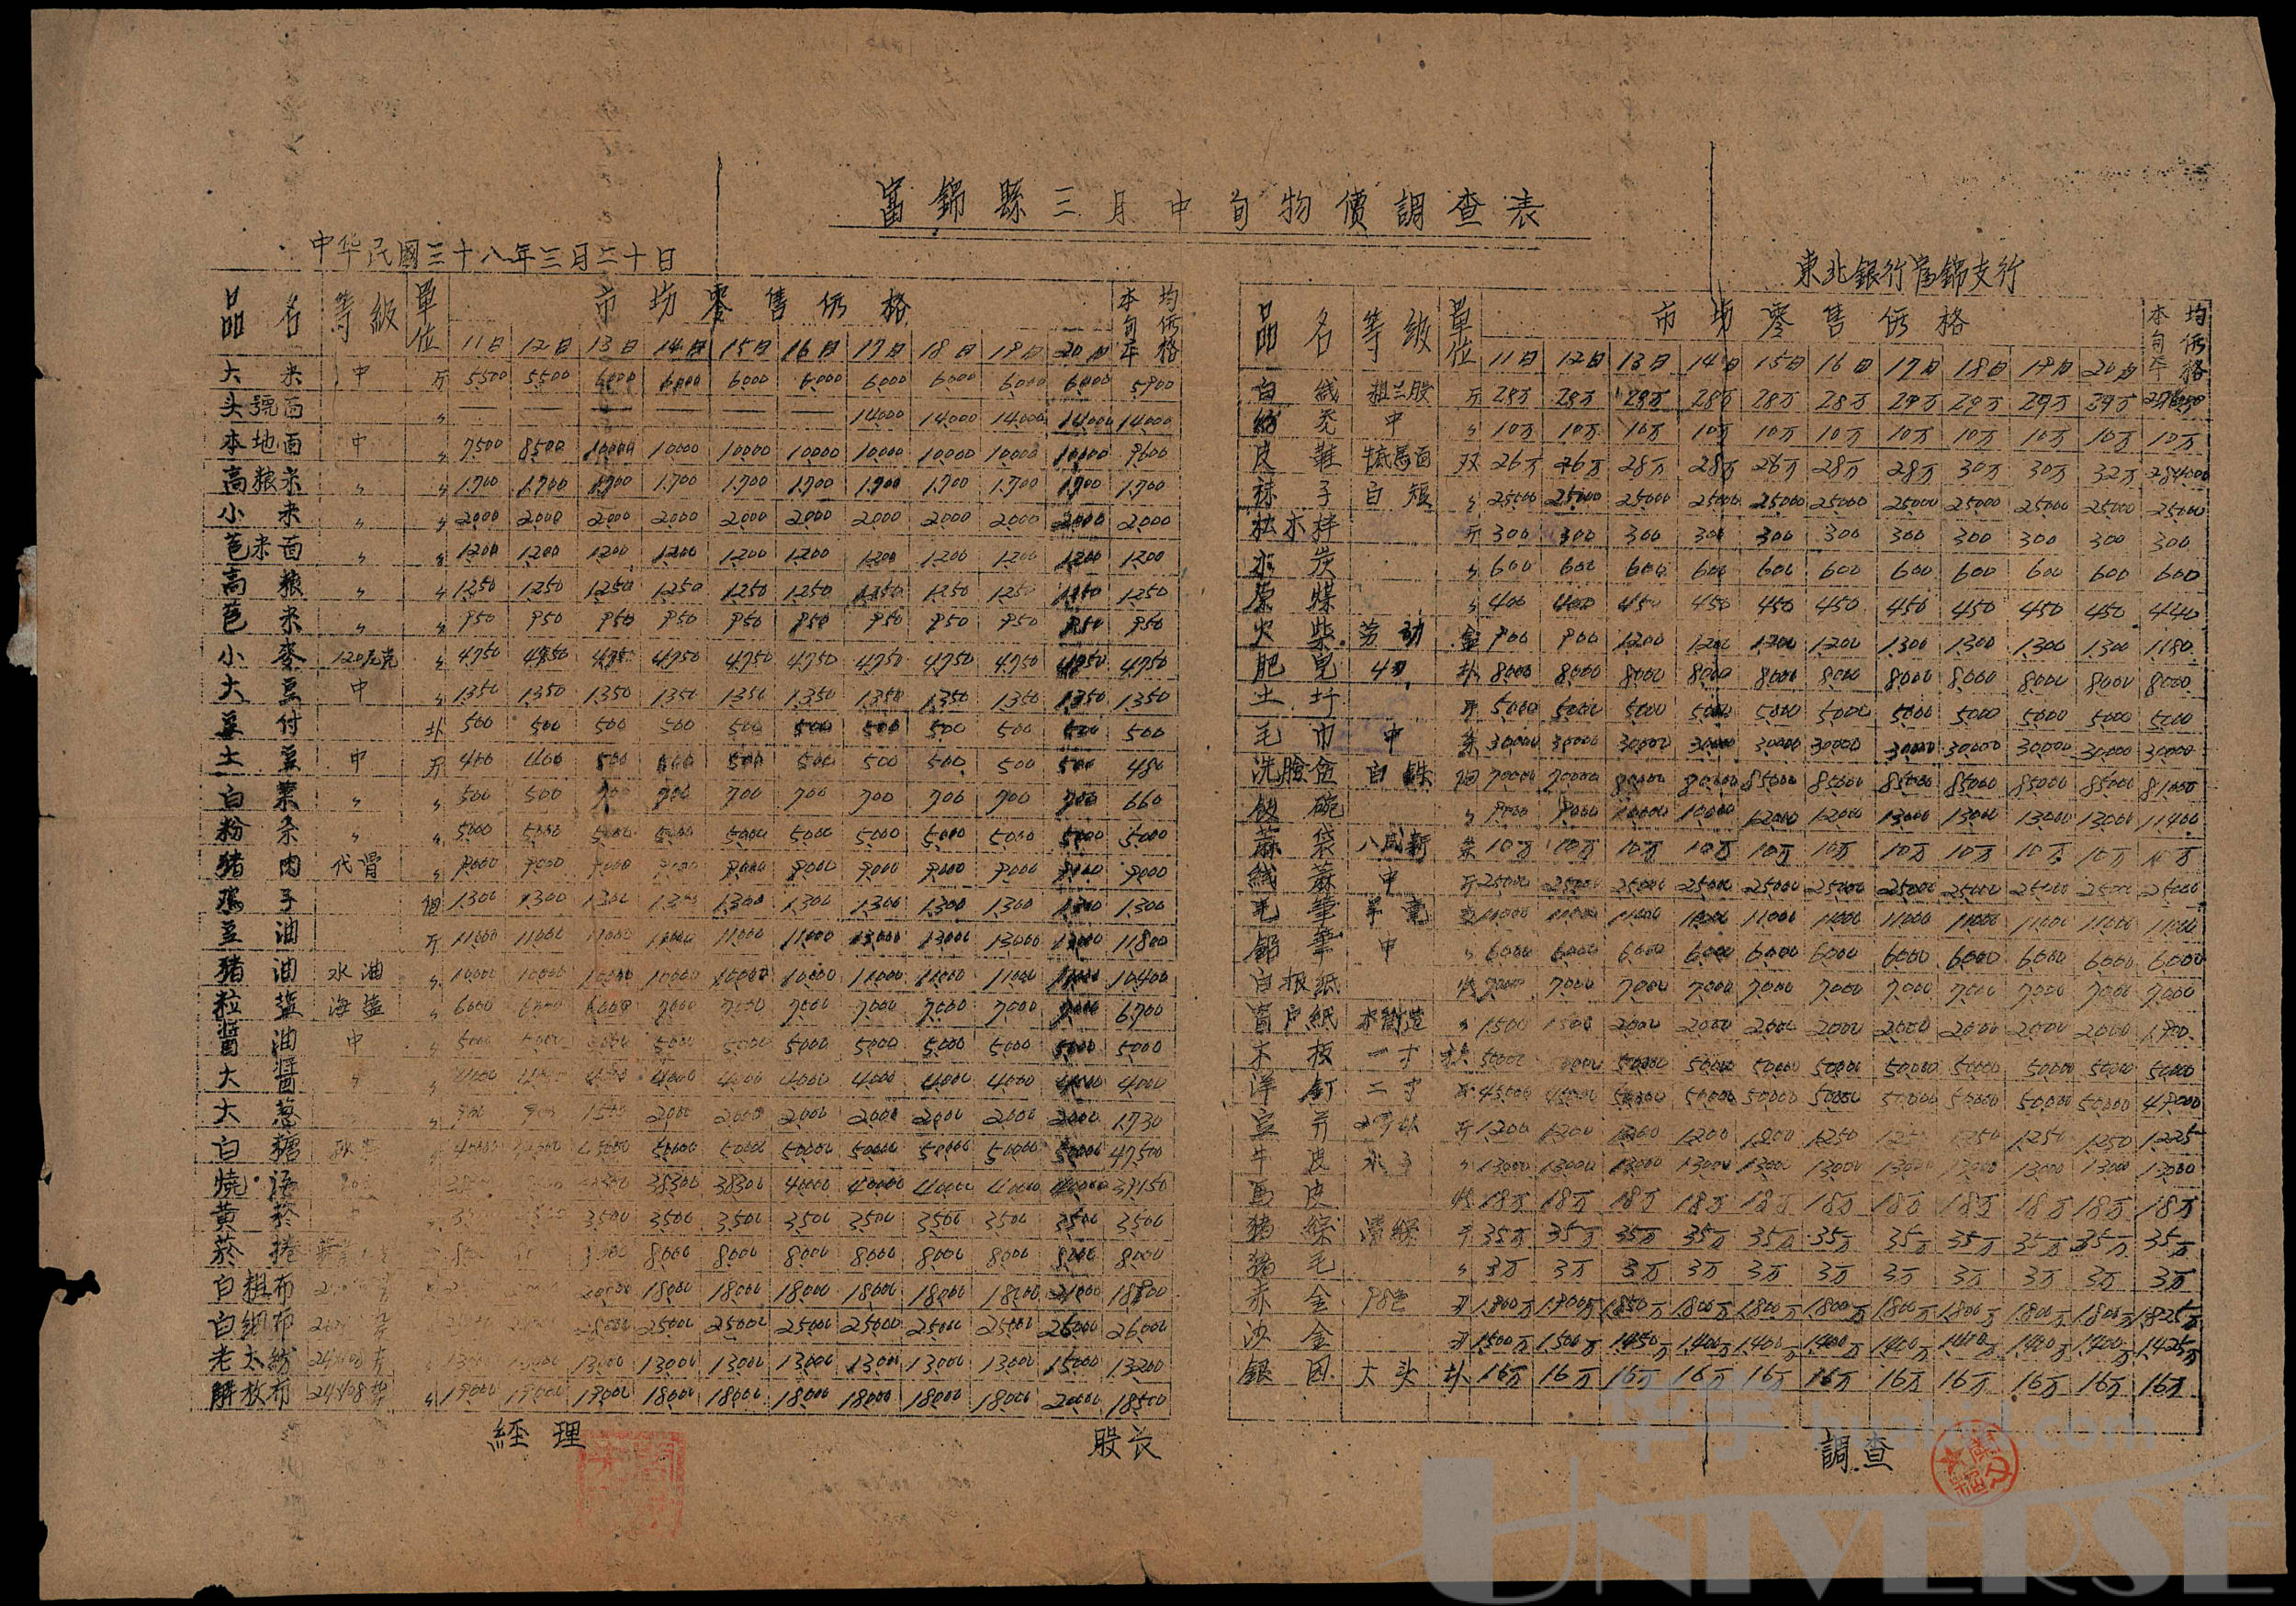 富錦縣三月中旬物價調查表
中华民國三十八年三月二十日
東北銀行富錦支行
品名 等級 單位 市場零售価格 本旬平均価格
11日 12日 13日 14日 15日 16日 17日 18日 19日 20日
大米 中 斤 5500 5500 6000 6000 6000 6000 6000 6000 6000 6000 5900
头號面 〃 — — — — — — 14000 14000 14000 14000 14000
本地面 中 〃 7500 8500 10000 10000 10000 10000 10000 10000 10000 10000 9600
高粮米 〃 〃 1700 1700 1700 1700 1700 1700 1700 1700 1700 1700 1700
小米 〃 〃 2000 2000 2000 2000 2000 2000 2000 2000 2000 2000 2000
苞米面 〃 〃 1200 1200 1200 1200 1200 1200 1200 1200 1200 1200 1200
高粮 〃 〃 1250 1250 1250 1250 1250 1250 1250 1250 1250 1250 1250
苞米 〃 〃 950 950 950 950 950 950 950 950 950 950 950
小麥 〃 4750 4750 4750 4750 4750 4750 4750 4750 4750 4750 4750
大豆 中 〃 1350 1350 1350 1350 1350 1350 1350 1350 1350 1350 1350
豆付 块 500 500 500 500 500 500 500 500 500 500 500
土豆 中 斤 400 400 500 500 500 500 500 500 500 500 480
白菜 〃 〃 500 500 700 700 700 700 700 700 700 700 660
粉条 〃 〃 5000 5000 5000 5000 5000 5000 5000 5000 5000 5000 5000
猪肉 代骨 〃 9000 9000 9000 9000 9000 9000 9000 9000 9000 9000 9000
鸡子 個 1300 1300 1300 1300 1300 1300 1300 1300 1300 1300 1300
豆油 斤 11000 11000 11000 11000 11000 11000 13000 13000 13000 13000 11800
猪油 水油 〃 10000 10000 10000 10000 10000 10000 11000 11000 11000 11000 10400
粒盐 海盐 〃 6000 6000 6000 7000 7000 7000 7000 7000 7000 7000 6700
醤油 中 〃 5000 5000 5000 5000 5000 5000 5000 5000 5000 5000 5000
大醤 〃 〃 4000 4000 4000 4000 4000 4000 4000 4000 4000 4000 4000
大葱 〃 900 900 1500 2000 2000 2000 2000 2000 2000 2000 1730
白糖 40000 45000 50000 50000 50000 50000 50000 50000 50000 47500
燒酒 38300 38300 40000 40000 40000 40000 40000 39150
黃菸 3500 3500 3500 3500 3500 3500 3500 3500 3500
菸捲 8000 8000 8000 8000 8000 8000 8000 8000
白粗布 20000 18000 18000 18000 18000 18000 18000 21000 18800
白細布 28000 25000 25000 25000 25000 25000 25000 26000 26000
老太紡 〃 13000 13000 13000 13000 13000 13000 13000 13000 13000 15000 13200
解放布 〃 19000 19000 19000 18000 18000 18000 18000 18000 18000 20000 18500
經理
股長
品名 等級 單位 市場零售価格 本旬平均価格
11日 12日 13日 14日 15日 16日 17日 18日 19日 20日
白线 粗三股 斤 28万 28万 28万 28万 28万 28万 29万 29万 29万 29万
中 〃 10万 10万 10万 10万 10万 10万 10万 10万 10万 10万 10万
皮鞋 双 26万 26万 28万 28万 28万 28万 28万 30万 30万 32万 284000
袜子 白短 〃 25000 25000 25000 25000 25000 25000 25000 25000 25000 25000 25000
松木柈 斤 300 300 300 300 300 300 300 300 300 300 300
木炭 〃 600 600 600 600 600 600 600 600 600 600 600
原煤 〃 400 400 450 450 450 450 450 450 450 450 440
火柴 劳动 盒 900 900 1200 1200 1200 1200 1300 1300 1300 1300 1180
肥皂 块 8000 8000 8000 8000 8000 8000 8000 8000 8000 8000 8000
土圩 斤 5000 5000 5000 5000 5000 5000 5000 5000 5000 5000 5000
毛巾 中 条 30000 30000 30000 30000 30000 30000 30000 30000 30000 30000 30000
洗臉盆 白鉄 個 70000 70000 80000 80000 85000 85000 85000 85000 85000 85000 81000
飯碗 〃 9000 9000 10000 10000 12000 12000 13000 13000 13000 13000 11400
蔴袋 八成新 条 10万 10万 10万 10万 10万 10万 10万 10万 10万 10万 10万
线蔴 中 斤 25000 25000 25000 25000 25000 25000 25000 25000 25000 25000 25000
毛筆 羊毫 支 11000 11000 11000 11000 11000 11000 11000 11000 11000 11000 11000
鉛筆 中 〃 6000 6000 6000 6000 6000 6000 6000 6000 6000 6000 6000
白报紙 张 7000 7000 7000 7000 7000 7000 7000 7000 7000 7000 7000
窗户紙 本街造 〃 1500 1500 2000 2000 2000 2000 2000 2000 2000 2000 1900
木板 一寸 块 50000 50000 50000 50000 50000 50000 50000 50000 50000 50000 50000
洋釘 二寸 斤 45000 45000 50000 50000 50000 50000 50000 50000 50000 50000 49000
豆并 斤 1200 1200 1200 1200 1200 1250 1250 1250 1250 1250 1225
牛皮 水子 〃 13000 13000 13000 13000 13000 13000 13000 13000 13000 13000 13000
馬皮 张 18万 18万 18万 18万 18万 18万 18万 18万 18万 18万 18万
猪综 清综 斤 35万 35万 35万 35万 35万 35万 35万 35万 35万 35万 35万
猪毛 〃 3万 3万 3万 3万 3万 3万 3万 3万 3万 3万 3万
赤金 98色 刄 1900万 1900万 1850万 1800万 1800万 1800万 1800万 1800万 1800万 1800万 1825万
沙金 刄 1500万 1500万 1450万 1400万 1400万 1400万 1400万 1400万 1400万 1400万 1425万
銀因 大头 块 16万 16万 16万 16万 16万 16万 16万 16万 16万 16万 16万
調查
UNIVERSE